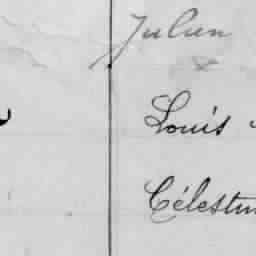 Julien
Louis
Célestin